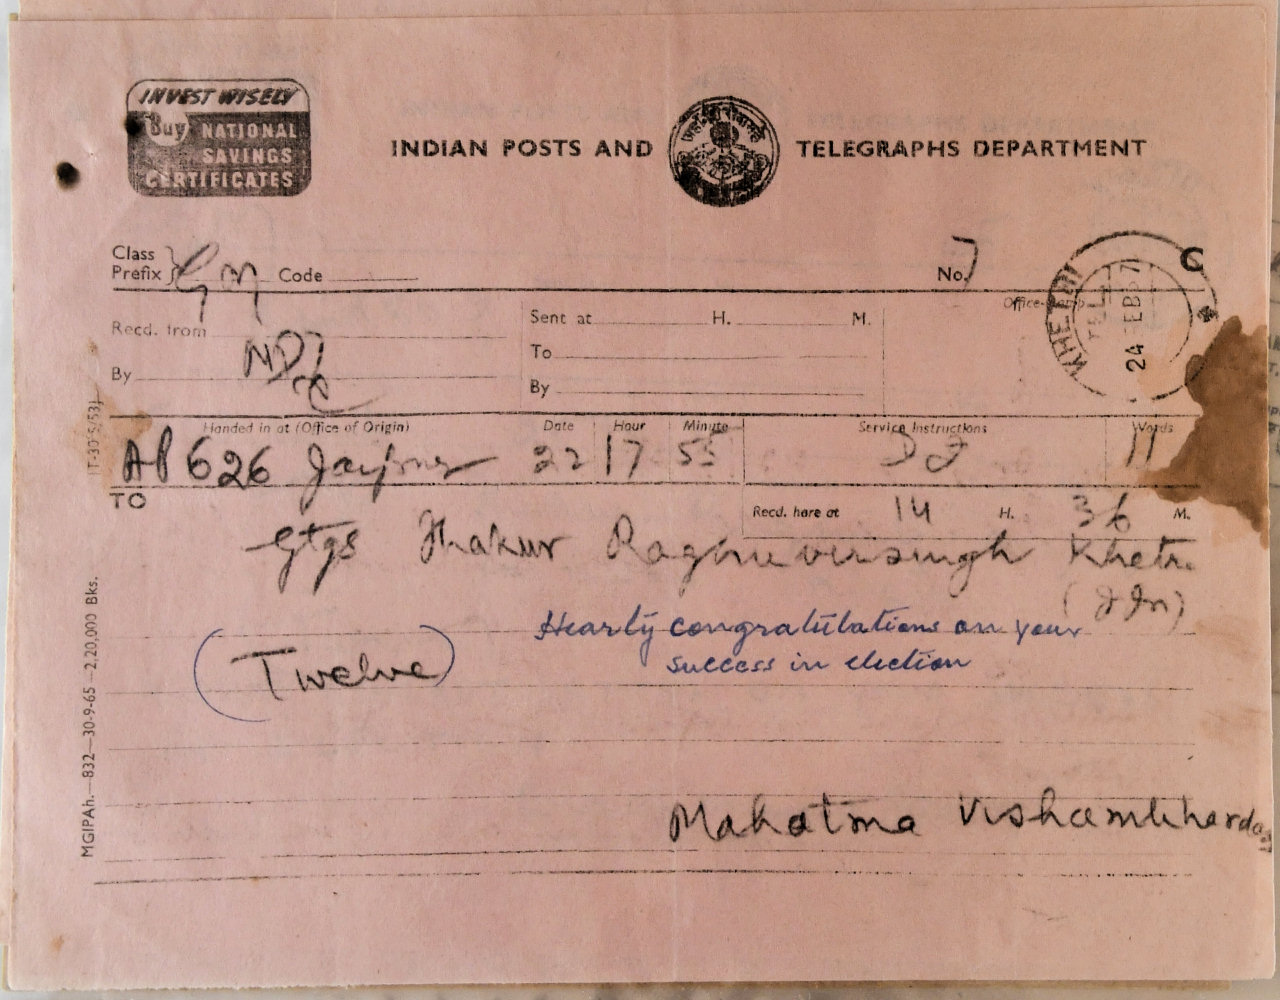 INVEST WISELY
Buy NATIONAL
SAVINGS
CERTIFICATES
INDIAN POSTS AND TELEGRAPHS DEPARTMENT
Class
Prefix } GM Code No 7
Office-Stamp
KHETRI
TEL
24 FEB 67
6
Recd. from
Sent at H. M.
To
By
By
Handed in at (Office of Origin) Date Hour Minute Service Instructions Words
AP 626 Jaipur 22 17 55 11
TO
Recd. here at 14 H. 36 M.
Gtgs Thakur Raghuvirsingh Khetri
(JJn)
Hearly congratulations on your
success in election
(Twelve)
Mahatma Vishambhardas
MGIPAh.—832—30-9-65—2,20,000 Bks.